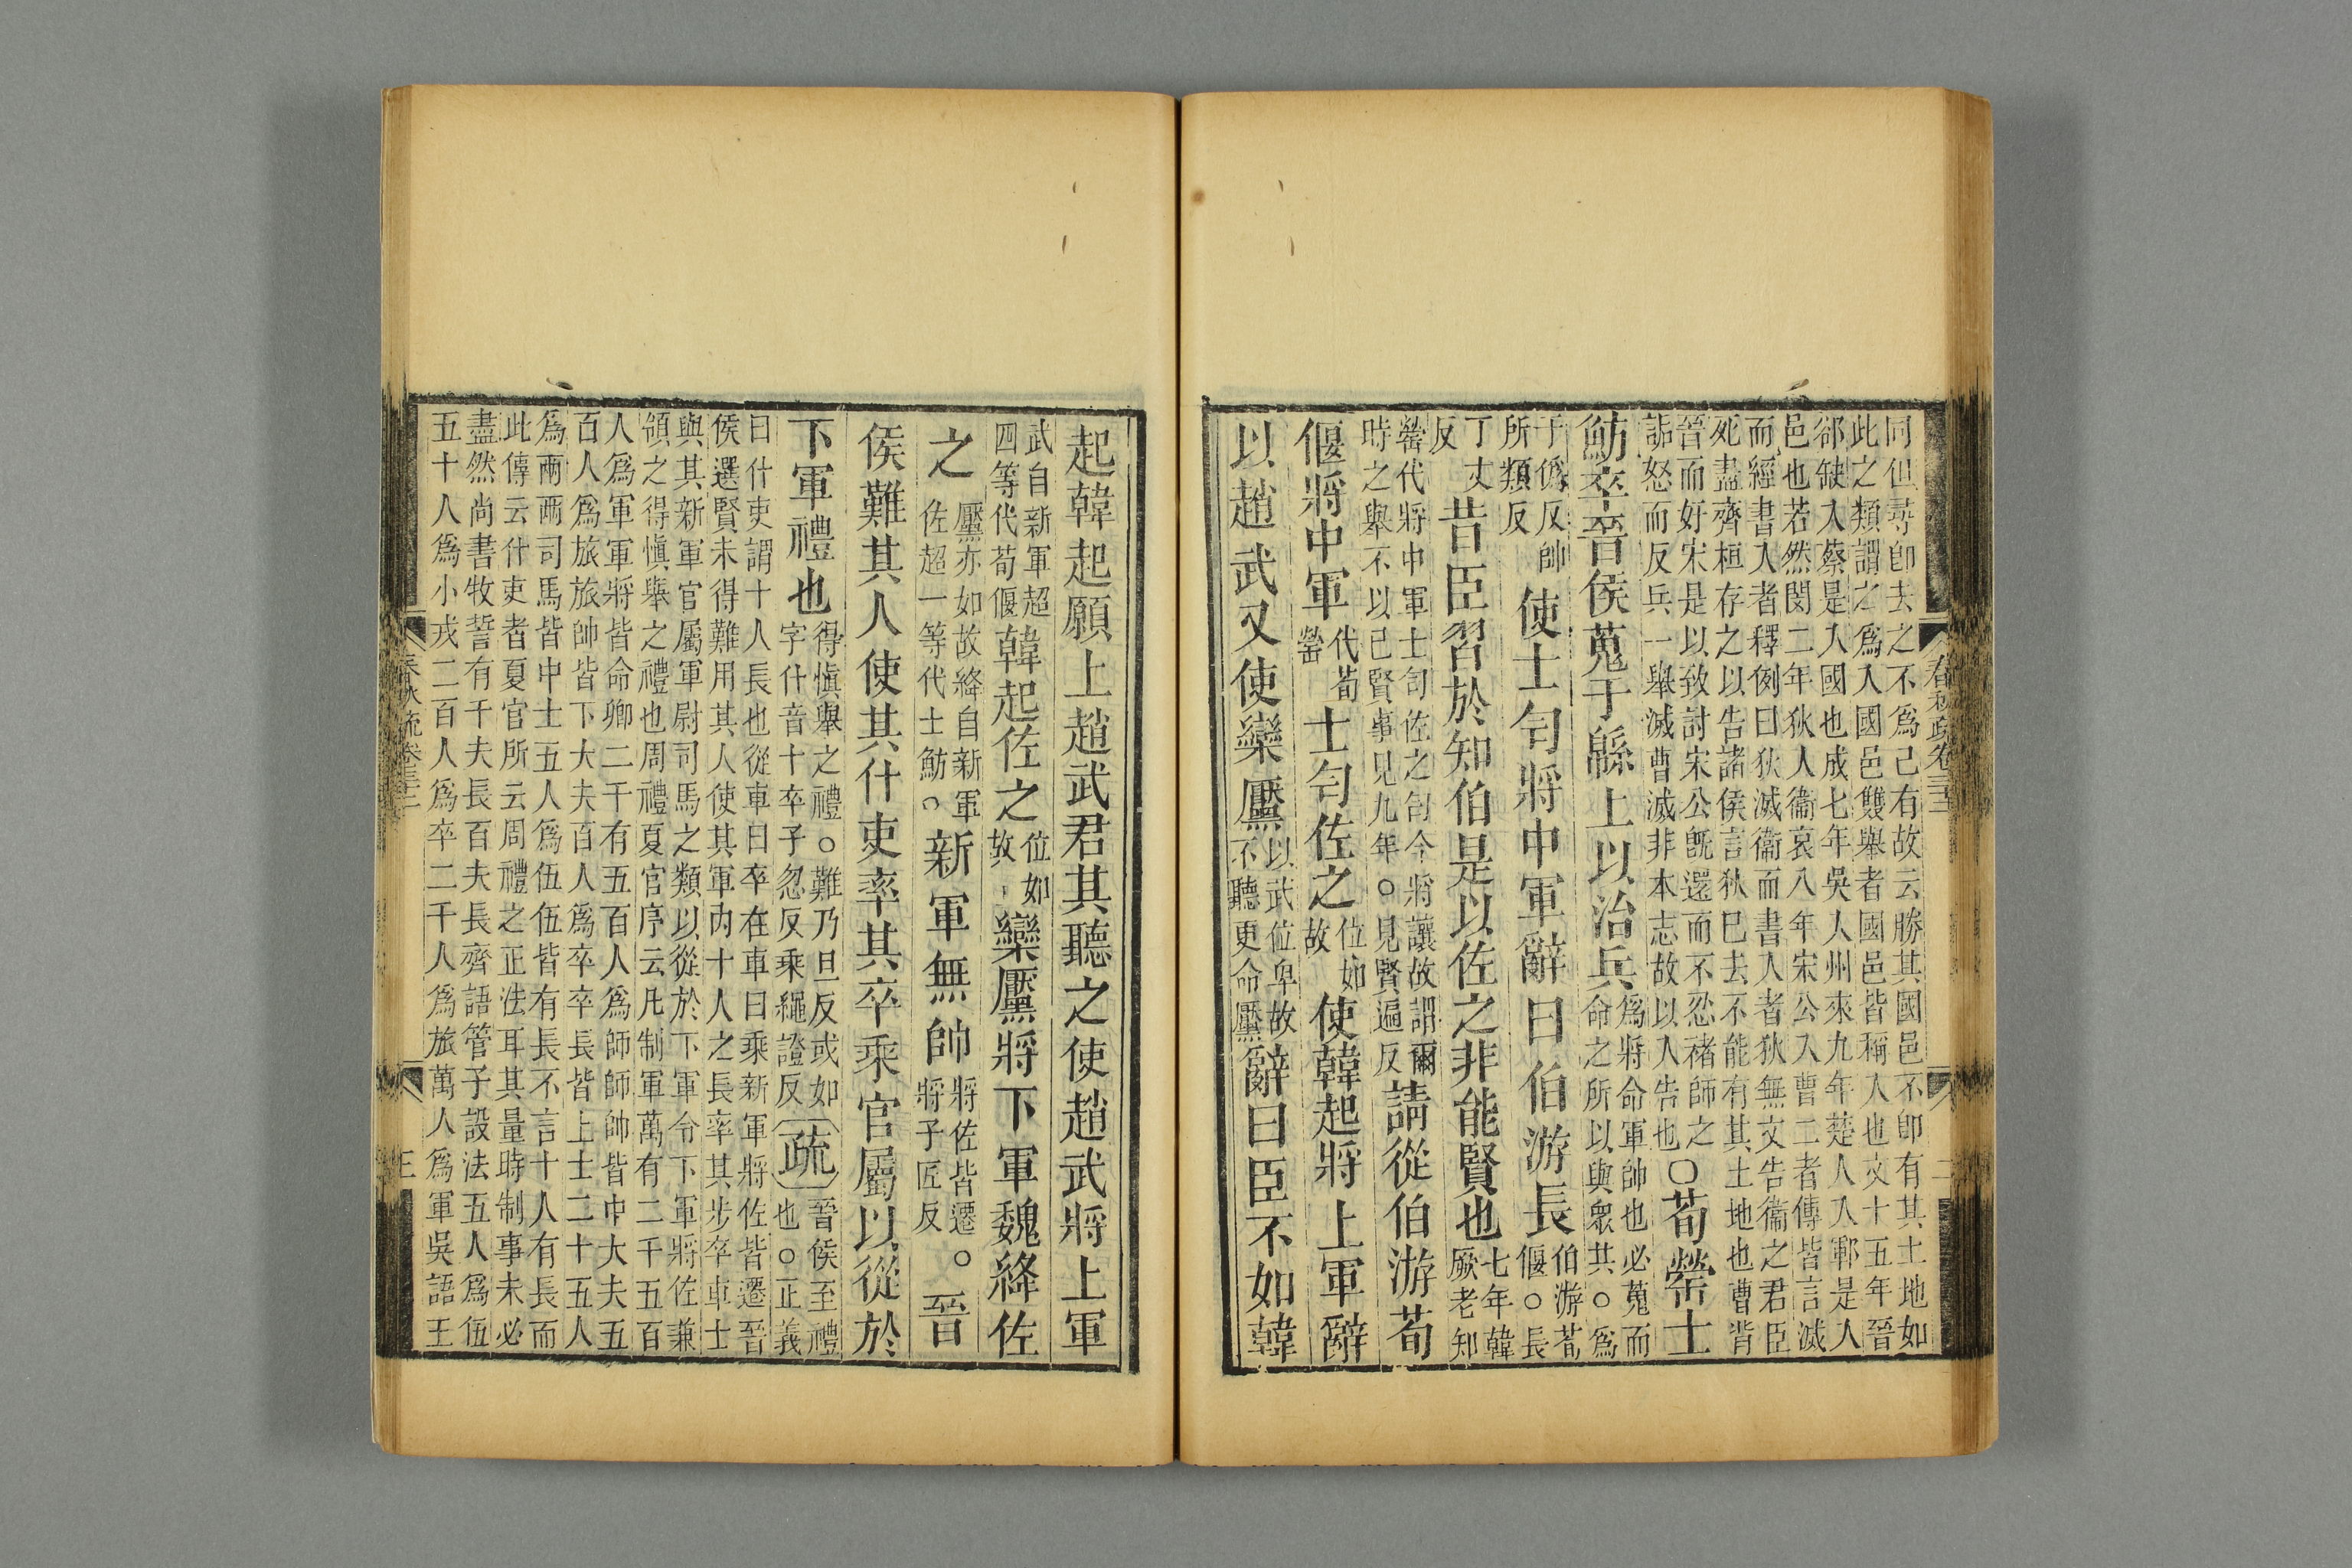 同但尋卽去之不爲己有故云勝其國邑不卽有其土地如
此之類謂之爲入國邑雙舉者國邑皆稱人也文十五年晉
郤缺入蔡是入國也成七年吳人州來九年楚人入鄆是人
邑也若然閔二年狄人衞哀八年宋公入曹二者傳皆言滅
而經書入者釋例曰狄滅衞而書入者狄無文告衞之君臣
死盡齊桓存之以告諸侯言狄巳去不能有其土地也曹背
晉而好宋是以致討宋公旣還而不忍褚師之
詬怒而反兵一舉滅曹滅非本志故以人告也○荀罃士
魴卒晉侯蒐于緜上以治兵爲將命軍帥也必蒐而命之所以與衆共○爲
于僞反帥所類反使士匄將中軍辭曰伯游長伯游荀偃○長
丁丈反昔臣習於知伯是以佐之非能賢也七年韓厥老知
罃代將中軍士匄佐之匄今將讓故謂爾時之舉不以已賢事見九年○見賢遍反請從伯游荀
偃將中軍代荀罃士匄佐之位如故使韓起將上軍辭
以趙武又使欒黶以武位卑故不聽更命黶辭曰臣不如韓
春秋疏卷三十二
二
起韓起願上趙武君其聽之使趙武將上軍
武自新軍超四等代荀偃韓起佐之位如故欒黶將下軍魏絳佐
之黶亦如故絳自新軍佐超一等代士魴○新軍無帥將佐皆遷○將子匠反晉
侯難其人使其什吏率其卒乘官屬以從於
下軍禮也得愼舉之禮○難乃旦反或如字什音十卒子忽反乘繩證反疏晉侯至禮也○正義
曰什吏謂十人長也從車曰卒在車曰乘新軍將佐皆遷晉
侯選賢未得難用其人使其軍內十人之長率其步卒車士
與其新軍官屬軍尉司馬之類以從於下軍令下軍將佐兼
領之得愼舉之禮也周禮夏官序云凡制軍萬有二千五百
人爲軍軍將皆命卿二千有五百人爲師師帥皆中大夫五
百人爲旅旅帥皆下大夫百人爲卒卒長皆上士二十五人
爲兩兩司馬皆中士五人爲伍伍皆有長不言十人有長而
此傳云什吏者夏官所云周禮之正法耳其量時制事未必
盡然尚書牧誓有千夫長百夫長齊語管子設法五人爲伍
五十人爲小戎二百人爲卒二千人爲旅萬人爲軍吳語王
春秋疏卷三十二
三